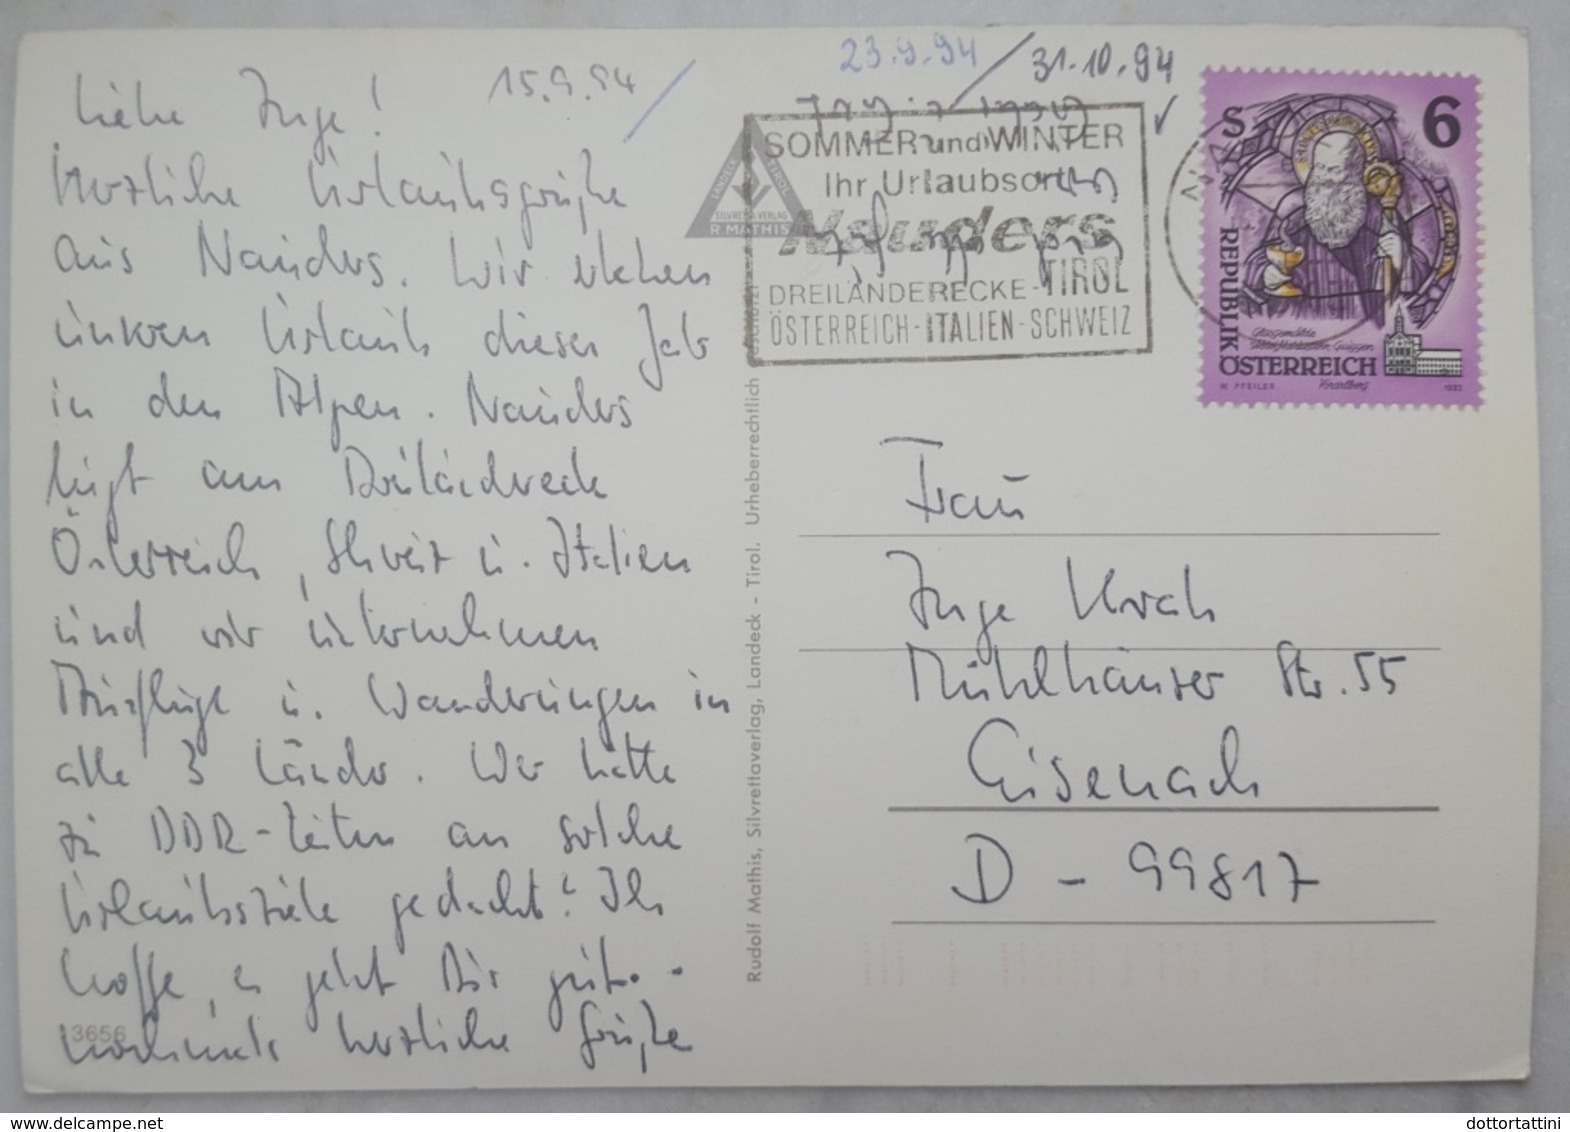 Liebe Inge! 15.9.94
Herzliche Urlaubsgrüße
aus Nauders. Wir erleben
unseren Urlaub dieses Jahr
in den Alpen. Nauders
liegt am Dreiländereck
Österreich, Schweiz u. Italien
und wir unternehmen
Ausflüge u. Wanderungen in
alle 3 Länder. Wer hätte
zu DDR-Zeiten an solche
Urlaubsziele gedacht? Ich
hoffe, es geht Dir gut.
nochmals herzliche Grüße
13656
23.9.94 / 31.10.94
LANDECK TIROL
SILVRETTA VERLAG
R. MATHIS
SOMMER und WINTER
Ihr Urlaubsort
Nauders
DREILÄNDERECKE-TIROL
ÖSTERREICH-ITALIEN-SCHWEIZ
S 6
REPUBLIK
ÖSTERREICH
W. PFEILER Vorarlberg 1993
Rudolf Mathis, Silvrettaverlag, Landeck - Tirol. Urheberrechtlich geschützt
Frau
Inge
Mühlhäuser Str. 55
Eisenach
D - 99817
dottortattini